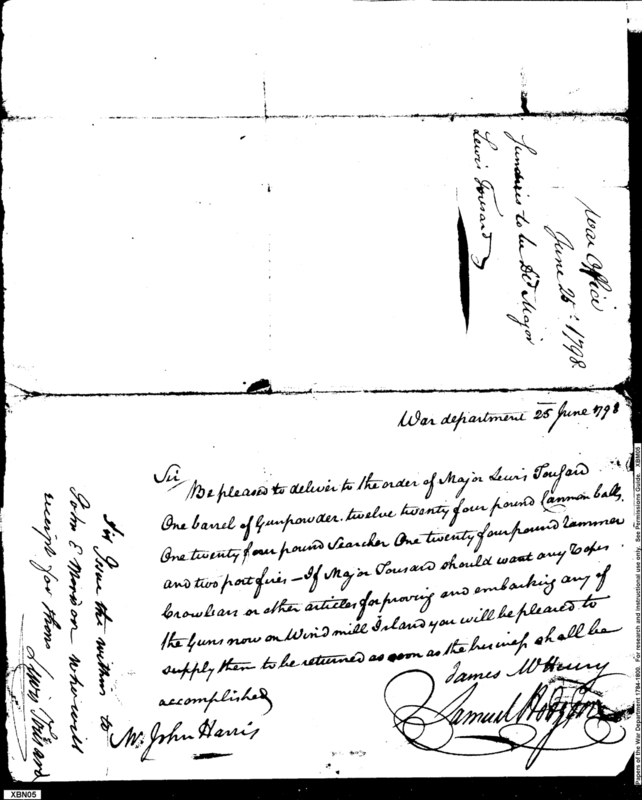 War Office
June 25th: 1798.
Sundries to be Dd. Major
Lewis Tousard
War department 25 June 1798
Sir
Be pleased to deliver to the order of Major Lewis Tousard
One barrel of Gunpowder, twelve twenty four pound Cannon balls,
One twenty four pound Searcher One twenty four pound rammer
and two portfires – If Major Tousard should want any Ropes
Crowbars or other articles for proving and embarking any of
the Guns now on Wind mill Island you will be pleased to
supply them to be returned as soon as the business shall be
accomplished
James McHenry
Samuel Hodgdon
Mr. John Harris
Sir Issue the within to
John E who will
receipt for them
Lewis Tousard
XBN05
Papers of the War Department 1784-1800. For research and instructional use only. See Permissions Guide. XBN05